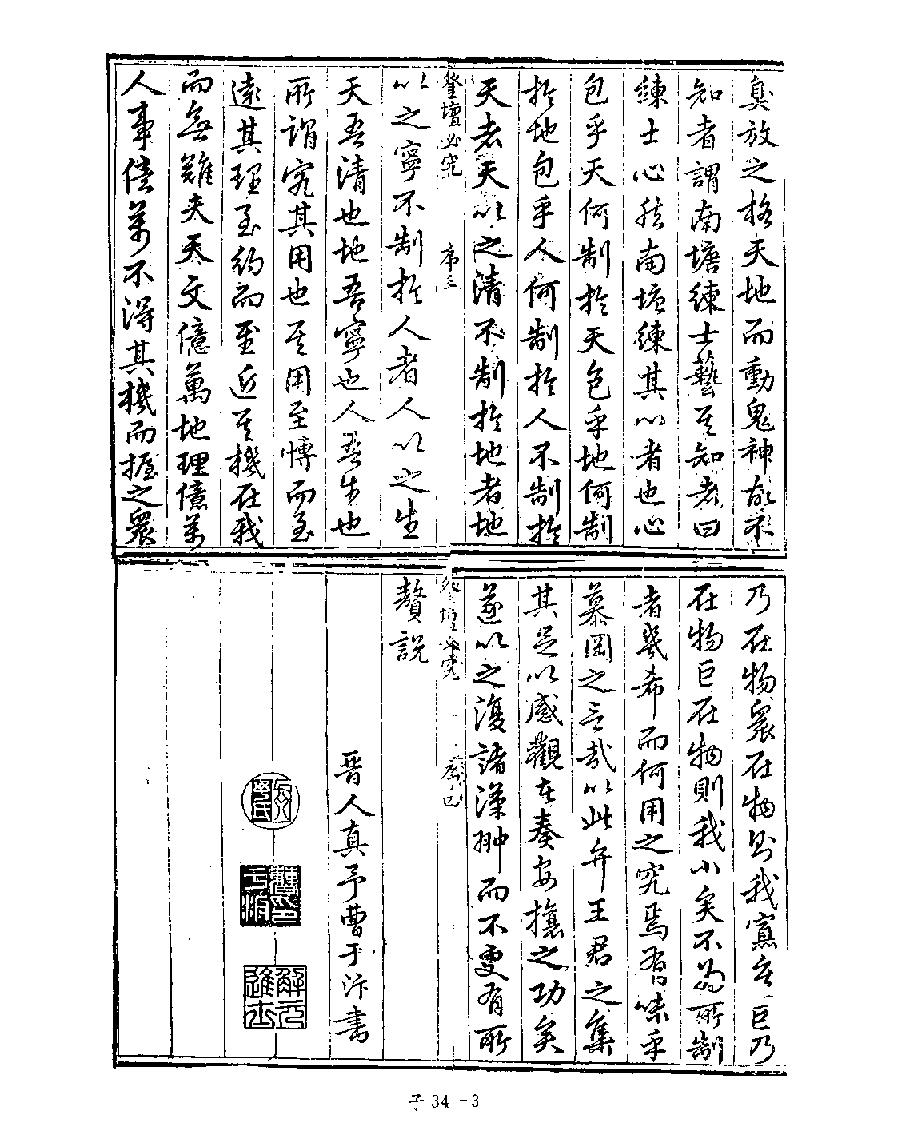 臭放之格天地而動鬼神故不
知者謂南塘練士藝其知者曰
練士心然南塘練其以者也心
包乎天何制於天包乎地何制
於地包乎人何制於人不制於
天者天以之清不制於地者地
登壇必究 序三
以之寧不制於人者人以之生
天吾清也地吾寧也人吾生也
所謂究其用也其用至博而至
遠其理至約而至近其機在我
而無難夫天文億萬地理億萬
人事億萬不得其機而握之衆
乃在物衆在物則我寡矣巨乃
在物巨在物則我小矣不為所制
者幾希而何用之究焉有味乎
慕岡之言哉以此弁王君之集
其足以感觀在奏安攘之功矣
遂以之復諸漢翀而不更有所
登壇必究 序四
贅說
晉人真予曹于汴書
解元
進士